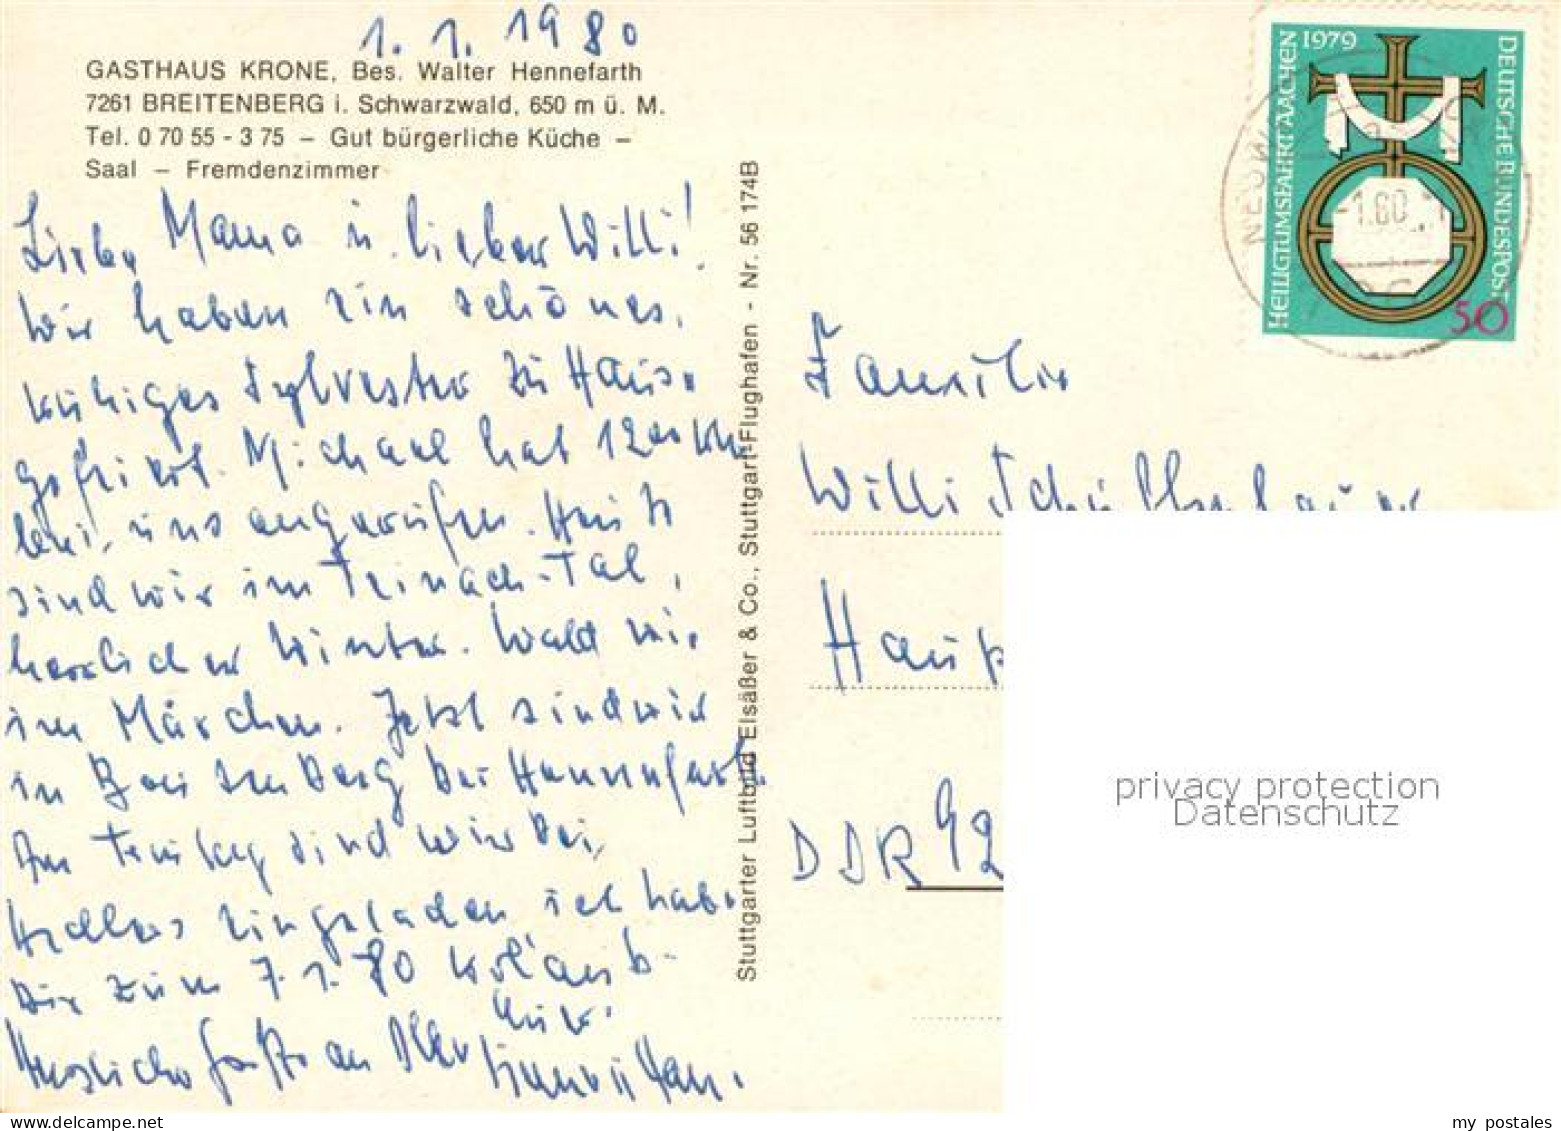 1. 1. 1980
GASTHAUS KRONE, Bes. Walter Hennefarth
7261 BREITENBERG i. Schwarzwald, 650 m ü. M.
Tel. 0 70 55 - 3 75 – Gut bürgerliche Küche –
Saal – Fremdenzimmer
Liebe Mama u. lieber Willi!
Wir haben ein schönes,
ruhiges Sylvester zu Haus
gefeiert. Michael hat 12 00 Uhr
uns angerufen. Heute
sind wir im Teinach-Tal,
herrlicher Winter. Wald wie
im Märchen. Jetzt sind wir
in Breitenberg bei Hennefarth.
Am sind wir bei
eingeladen ich habe
Die zum 7.1.80
Herzliche Grüße an
Stuttgarter Luftbild Elsäßer & Co., Stuttgart-Flughafen - Nr. 56 174B
HEILIGTUMSFAHRT AACHEN 1979
DEUTSCHE BUNDESPOST
50
-1.80
Familie
Willi
Haup
DDR 92
privacy protection
Datenschutz
my postales